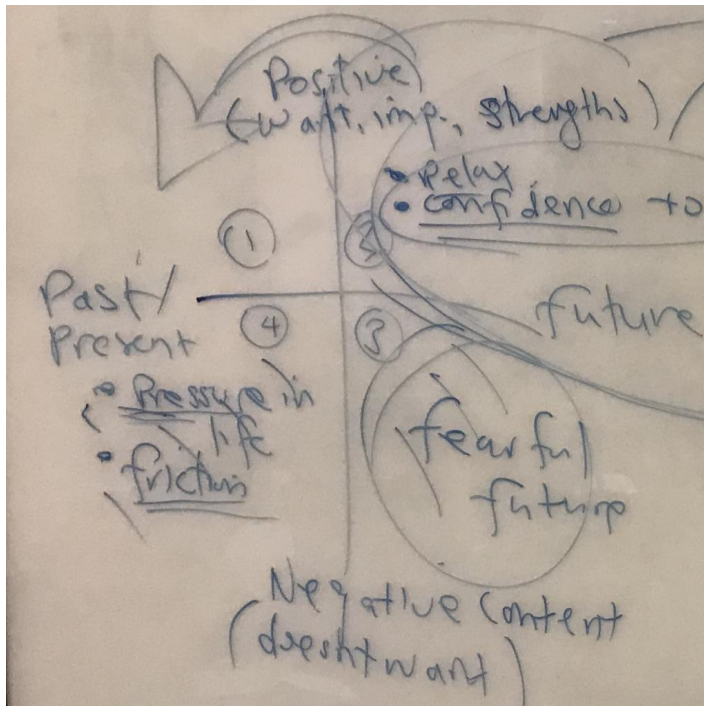 Positive
(want, imp., strengths)
• Relax
• confidence to
①
②
Past/
Present
future
④
③
• Pressure in
life
• friction
fearful
future
Negative Content
(doesn't want)